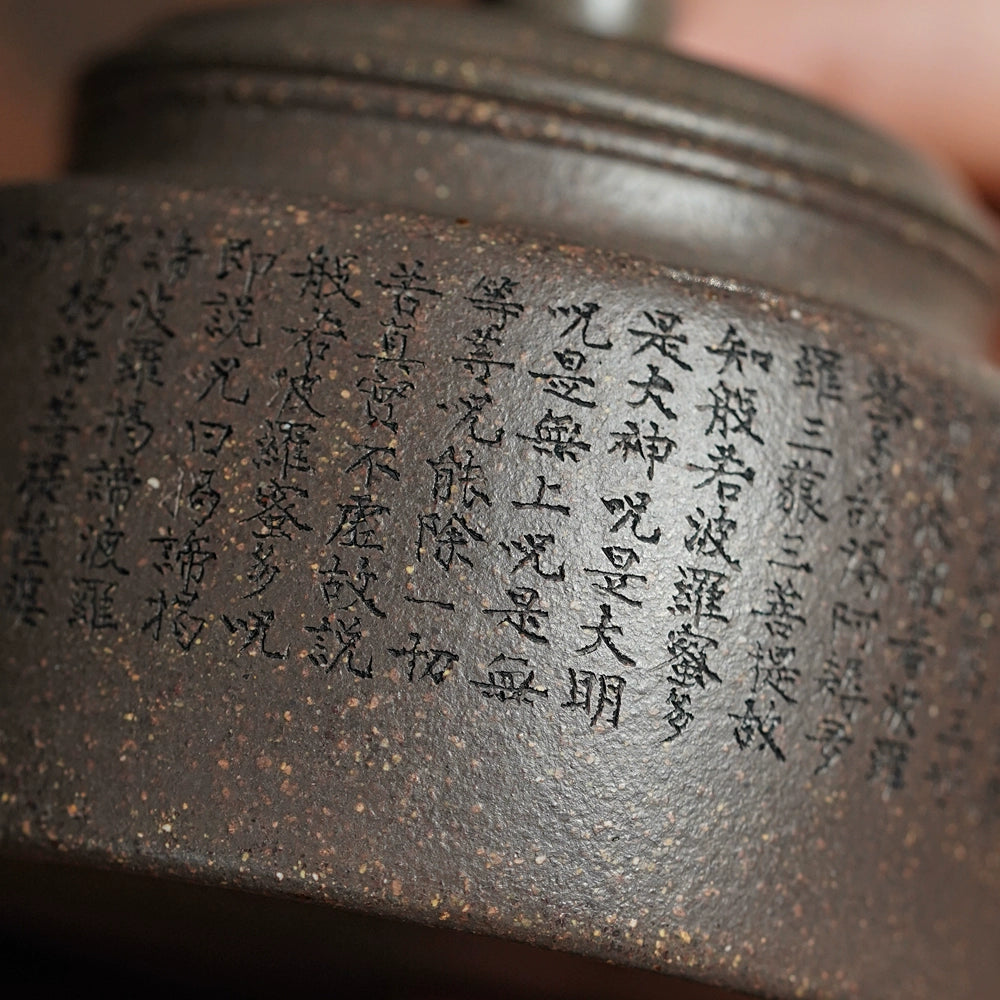 蜜多故得阿耨多
羅三藐三菩提故
知般若波羅蜜多
是大神呪是大明
呪是無上呪是無
等等呪能除一切
苦真實不虛故説
般若波羅蜜多呪
即説咒曰揭諦揭
諦波羅揭諦波羅
僧揭諦菩提薩婆